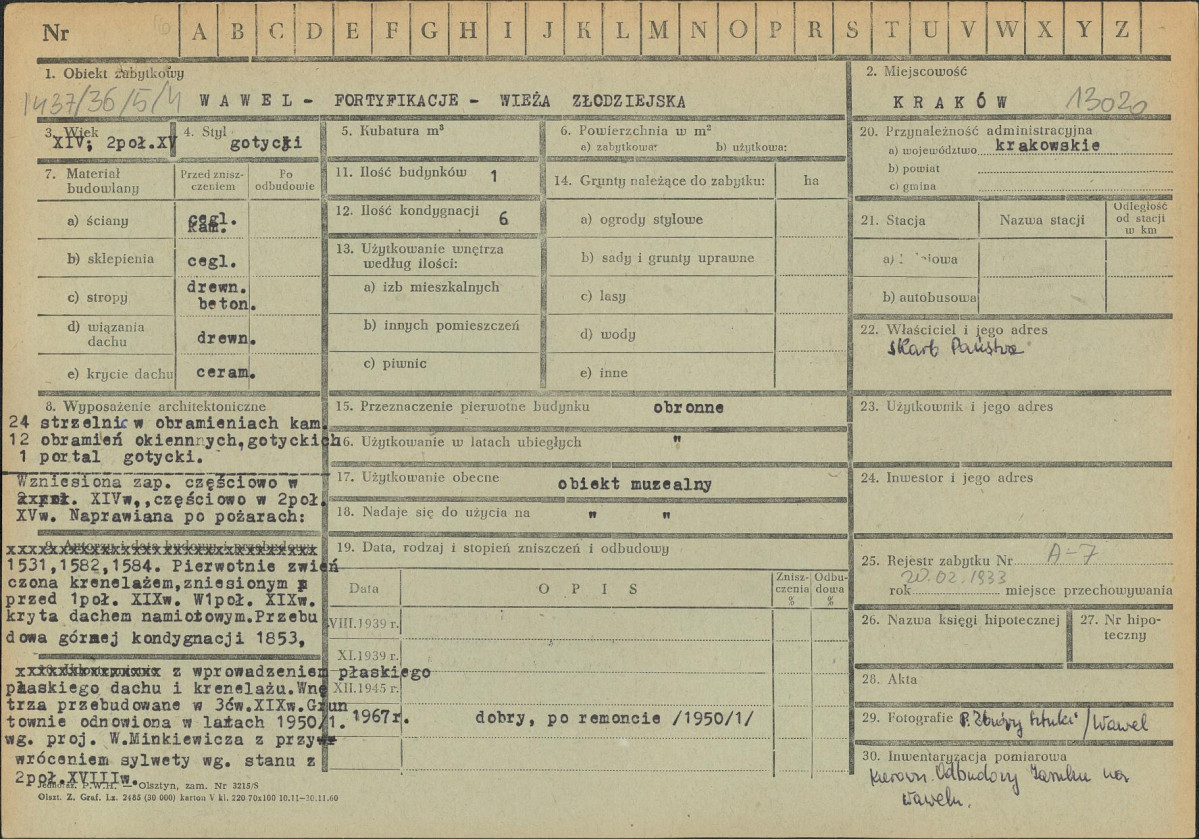 Nr A B C D E F G H I J K L M N O P R S T U V W X Y Z
1. Obiekt zabytkowy
1437/36/5/4 WAWEL - FORTYFIKACJE - WIEŻA ZŁODZIEJSKA
2. Miejscowość
KRAKÓW 13020
3. Wiek
XIV; 2poł.XV
4. Styl
gotycki
5. Kubatura m³
6. Powierzchnia w m²
a) zabytkowa: b) użytkowa:
20. Przynależność administracyjna
a) województwo krakowskie
b) powiat
c) gmina
7. Materiał
budowlany
Przed znisz-
czeniem
Po
odbudowie
a) ściany cegl.
kam.
b) sklepienia cegl.
c) stropy drewn.
beton.
d) wiązania
dachu drewn.
e) krycie dachu ceram.
11. Ilość budynków 1
12. Ilość kondygnacji 6
13. Użytkowanie wnętrza
według ilości:
a) izb mieszkalnych
b) innych pomieszczeń
c) piwnic
14. Grunty należące do zabytku: ha
a) ogrody stylowe
b) sady i grunty uprawne
c) lasy
d) wody
e) inne
21. Stacja Nazwa stacji Odległość
od stacji
w km
b) autobusowa
22. Właściciel i jego adres
Skarb Państwa
8. Wyposażenie architektoniczne
24 strzelnic w obramieniach kam.
12 obramień okiennnych,gotyckich
1 portal gotycki.
Wzniesiona zap. częściowo w
XIVw,,częściowo w 2poł.
XVw. Naprawiana po pożarach:
9. Autorzy i data budowy i przebudowy
1531,1582,1584. Pierwotnie zwień
czona krenelażem,zniesionym
przed 1poł. XIXw. W1poł. XIXw.
kryta dachem namiotowym.Przebu
dowa górnej kondygnacji 1853,
z wprowadzeniem płaskiego
płaskiego dachu i krenelażu.Wnę
trza przebudowane w 3ćw.XIXw.Grun
townie odnowiona w latach 1950/1.
wg. proj. W.Minkiewicza z przy
wróceniem sylwety wg. stanu z
2poł.XVIIIw.
15. Przeznaczenie pierwotne budynku obronne
16. Użytkowanie w latach ubiegłych "
17. Użytkowanie obecne obiekt muzealny
18. Nadaje się do użycia na " "
19. Data, rodzaj i stopień zniszczeń i odbudowy
Data OPIS Znisz-
czenia
%
Odbu-
dowa
%
VIII.1939 r.
XI.1939 r.
XII.1945 r.
1967r. dobry, po remoncie /1950/1/
23. Użytkownik i jego adres
24. Inwestor i jego adres
25. Rejestr zabytku Nr A-7
20.02.1933
rok miejsce przechowywania
26. Nazwa księgi hipotecznej
27. Nr hipo-
teczny
28. Akta
29. Fotografie P. Zbiory Sztuki /Wawel
30. Inwentaryzacja pomiarowa
Kierown. Odbudowy Zamku na
Wawelu.
Jednoraz. P.W.H. — Olsztyn, zam. Nr 3215/S
Olszt. Z. Graf. Lz. 2485 (30 000) kartou V kl. 220 70x100 10.11—30.11.60